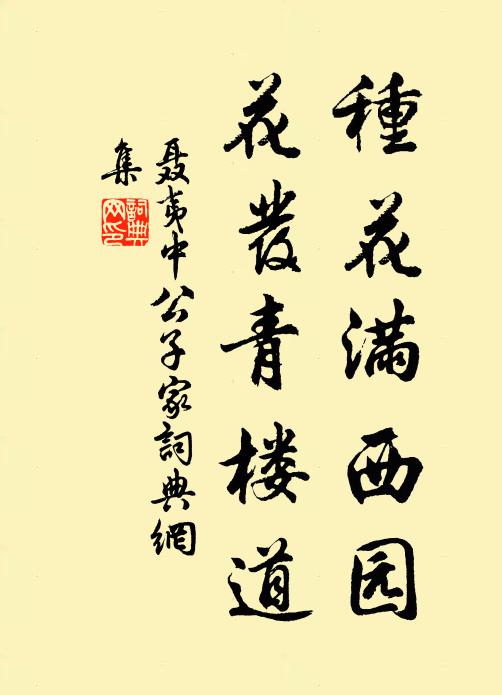 種花满西园
花發青楼道
聂夷中公子家詞典網
集
詞典网印